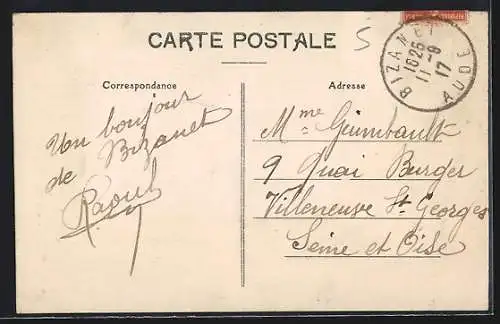 CARTE POSTALE
5
BIZANET AUDE
1626
11 -9
17
Correspondance
Adresse
Un bonjour
de Bizanet
Raoul
Mme Guimbault
9 Quai Burger
Villeneuve St. Georges
Seine et Oise